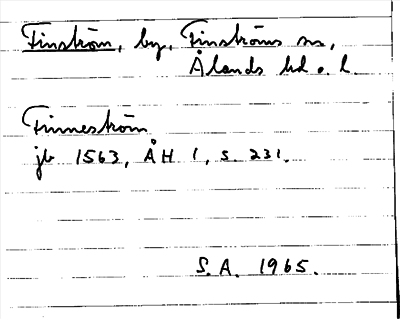 Finström, by, Finströms sn,
Ålands hd o. l.
Finneström
jb 1563, ÅH 1, s. 231.
S.A. 1965.